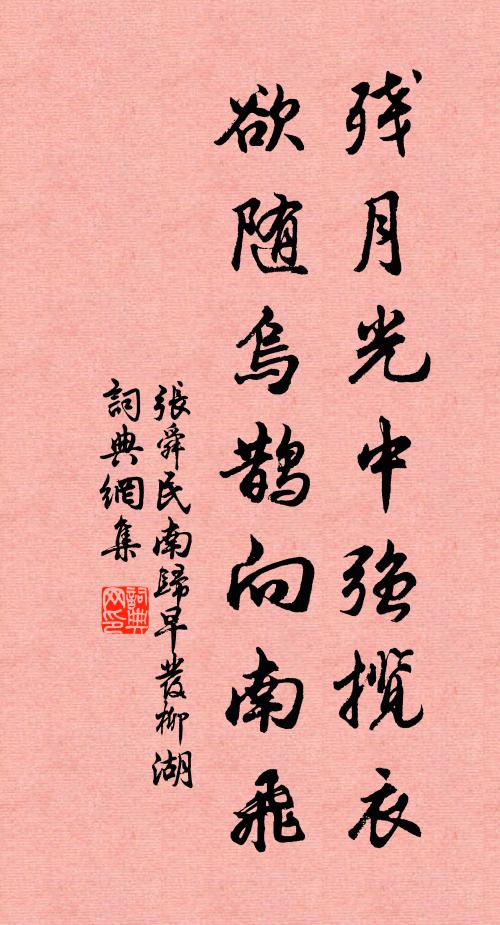 残月光中强揽衣
欲随乌鹊向南飞
張舜民南歸早發柳湖
詞典網集
詞典网印